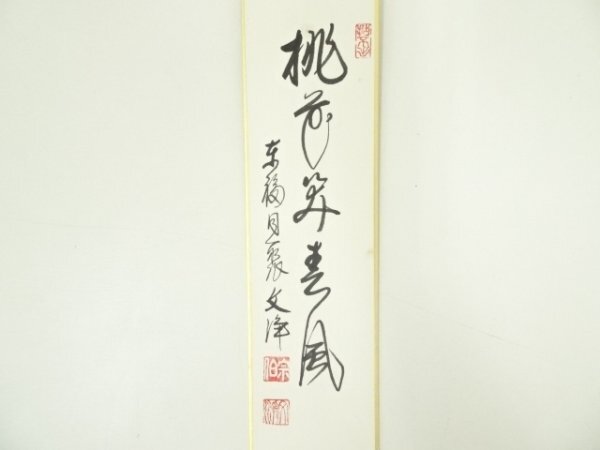 桃花笑春風
東福目裏文浄